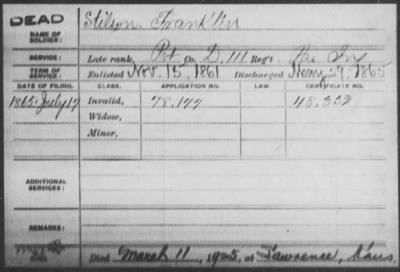 DEAD
NAME OF SOLDIER:
Stilson Franklin
SERVICE:
Late rank, Pvt Co. D, 111 Reg't Pa Inf
TERM OF SERVICE:
Enlisted Nov. 15, 1861 Discharged 29, 1865
DATE OF FILING. CLASS. APPLICATION NO. LAW CERTIFICATE NO.
1865 July 17 Invalid, 78,177 48,332
Widow,
Minor,
ADDITIONAL SERVICES:
REMARKS:
Died March 11, 1925, at Lawrence, Kans.